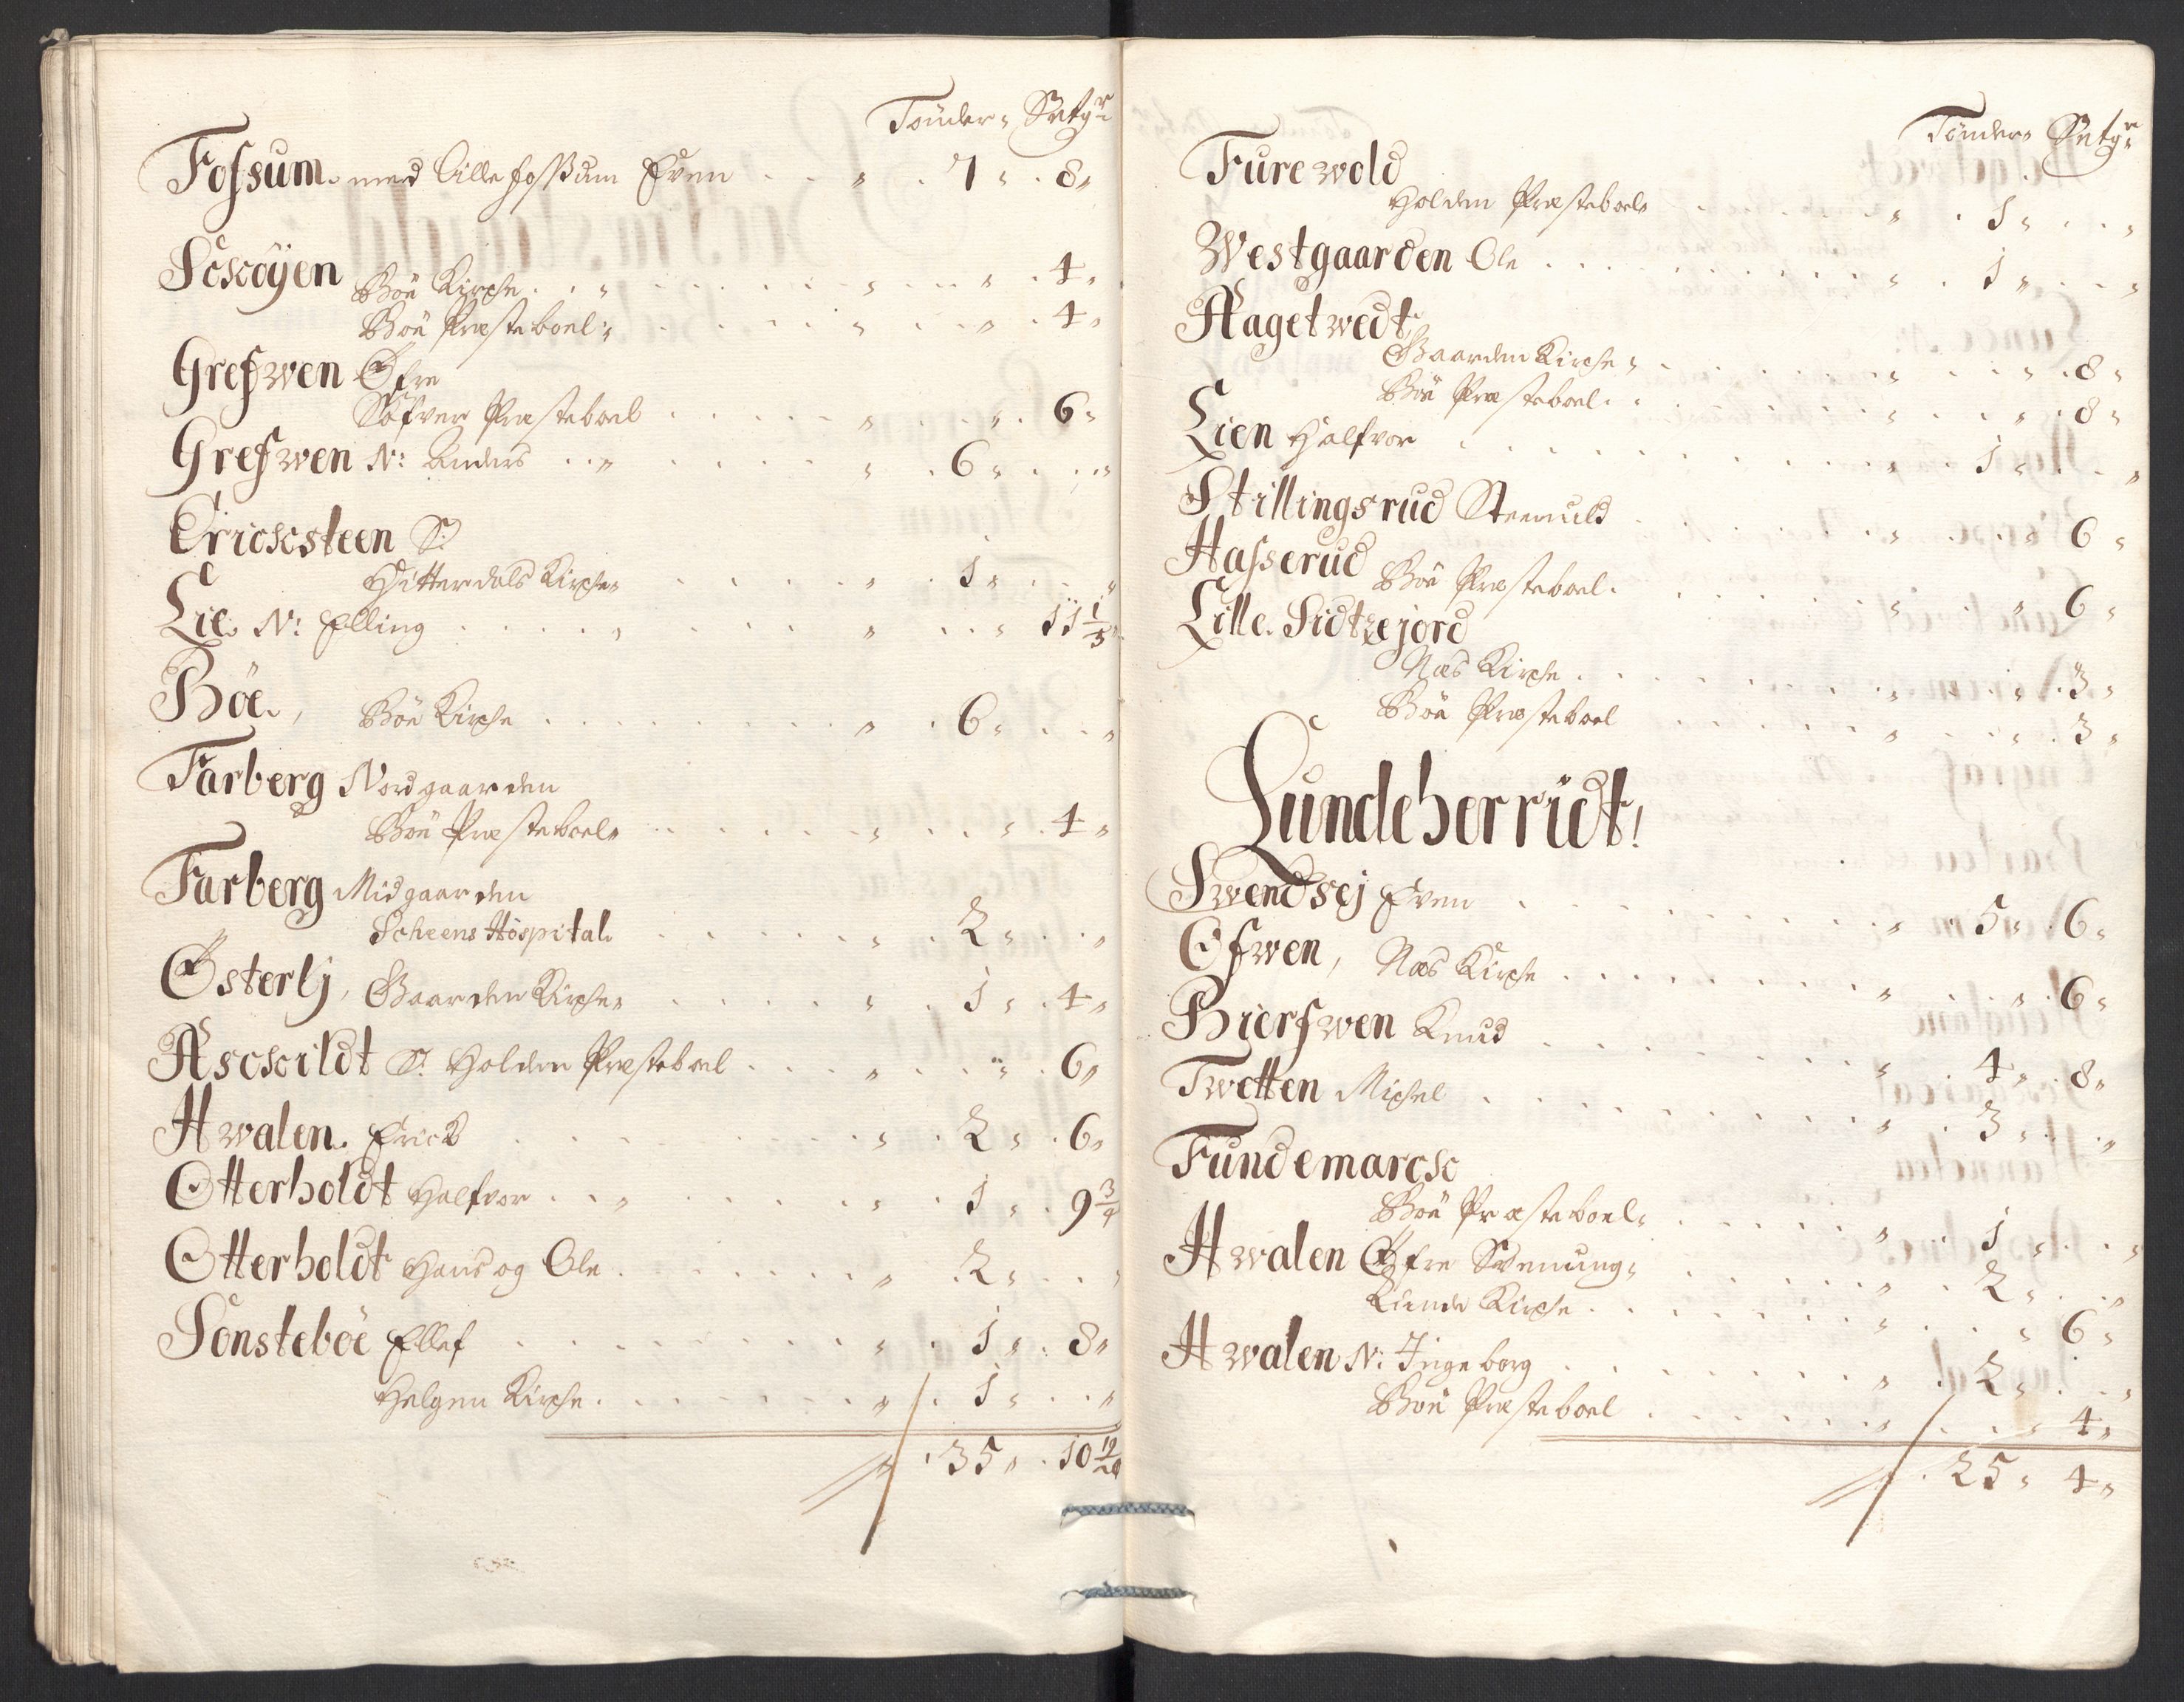 Tønder, Setg.r
Fossum. med Lille foßum Even . . „ . 7 „ . 8„
Sckoyen
Böe Kirche . . „ . . . . . „ . . „ . 4„
Böe Præsteboel „ . . . . „ . . „ . 4„
Grefswen Öfre
Söfver Præsteboel . . . . . „ . . „ . 6„
Grefswen N: Anders . . „ . . . . „ . 6 „ . . „
Erichsteen S:
Hitterdals Kirche„ . . . . „ . 1 „ . . „
Lie. N: Elling . . . . „ . . . . „ . . „ 11 1/5 „
Böe, Böe Kirche . . . . . . . . . „ . 6 „ . . „
Farberg Nordgaarden
Böe Præsteboel„ . . . . . „ . . „ . 4„
Farberg Midgaarden
Scheens Hospital. . . . . . „ . 2 „ . . „
Østerlj, Gaarden Kirche„ . . . . „ . 1 „ . 4„
Aschildt S: Holden Præsteboel . . . „ . . „ . 6„
Hwalen. Erick . . . . . . . . „ . 2 „ . 6„
Otterholdt Halfvor . . „ . . . . . „ . 1 „ . 9 3/4
Otterholdt Hans og Ole . . . . . . „ . 2 „ . . „
Sonsteböe Ellef . . . . . . . . „ . 1 „ . 8„
Helgen Kirche . . . . . . „ . 1 „ . . „
„ . 35 „ . 10 19/20
Tønder, Setg.r
Furewold
Holden Præsteboel„ . . . . . „ . 1 „ . . „
Westgaarden Ole . . . . . . . . „ . 1 „ . . „
Hagetwedt
Gaarden Kirche„ . . . . . . „ . . „ . 8„
Böe Præsteboel. . . . . . . „ . . „ . 8„
Lien Halfvor . . . . . . . . . . „ . 1 „ . . „
Stillingsrud Steenuld . . . . . . „ . . „ 6 „
Hasserud Böe Præsteboel. . . . . . „ . . „ . 6 „
Lille. Sidtzejord
Næs Kirche . . . . . . . . „ . . „ . 3 „
Böe Præsteboel . . . . . . „ . . . . 3 „
Lundeherridt!
Swendsej Even . . . . . . . . . „ . 5 „ . 6„
Ofwen, Næs Kirche . . . . . . . . „ . . „ . 6„
Bierfwen Knud . . . . . . . . „ . 4 „ . 8„
Twetten Michel . . . . . . . . . „ . 3 „ . . „
Fundemarck
Böe Præsteboel„ . . . . . „ . 1 „ . . „
Hwalen Öfre Svenung„ . . . . . „ . 2 „ . . „
Lunde Kirche . . . . . . . „ . . „ 6 „
Hwalen N: Ingeborg . . . . . . „ . 2 „ . . „
Böe Præsteboel . . . . . . „ . . „ 4„
„ . 25 „ 4„